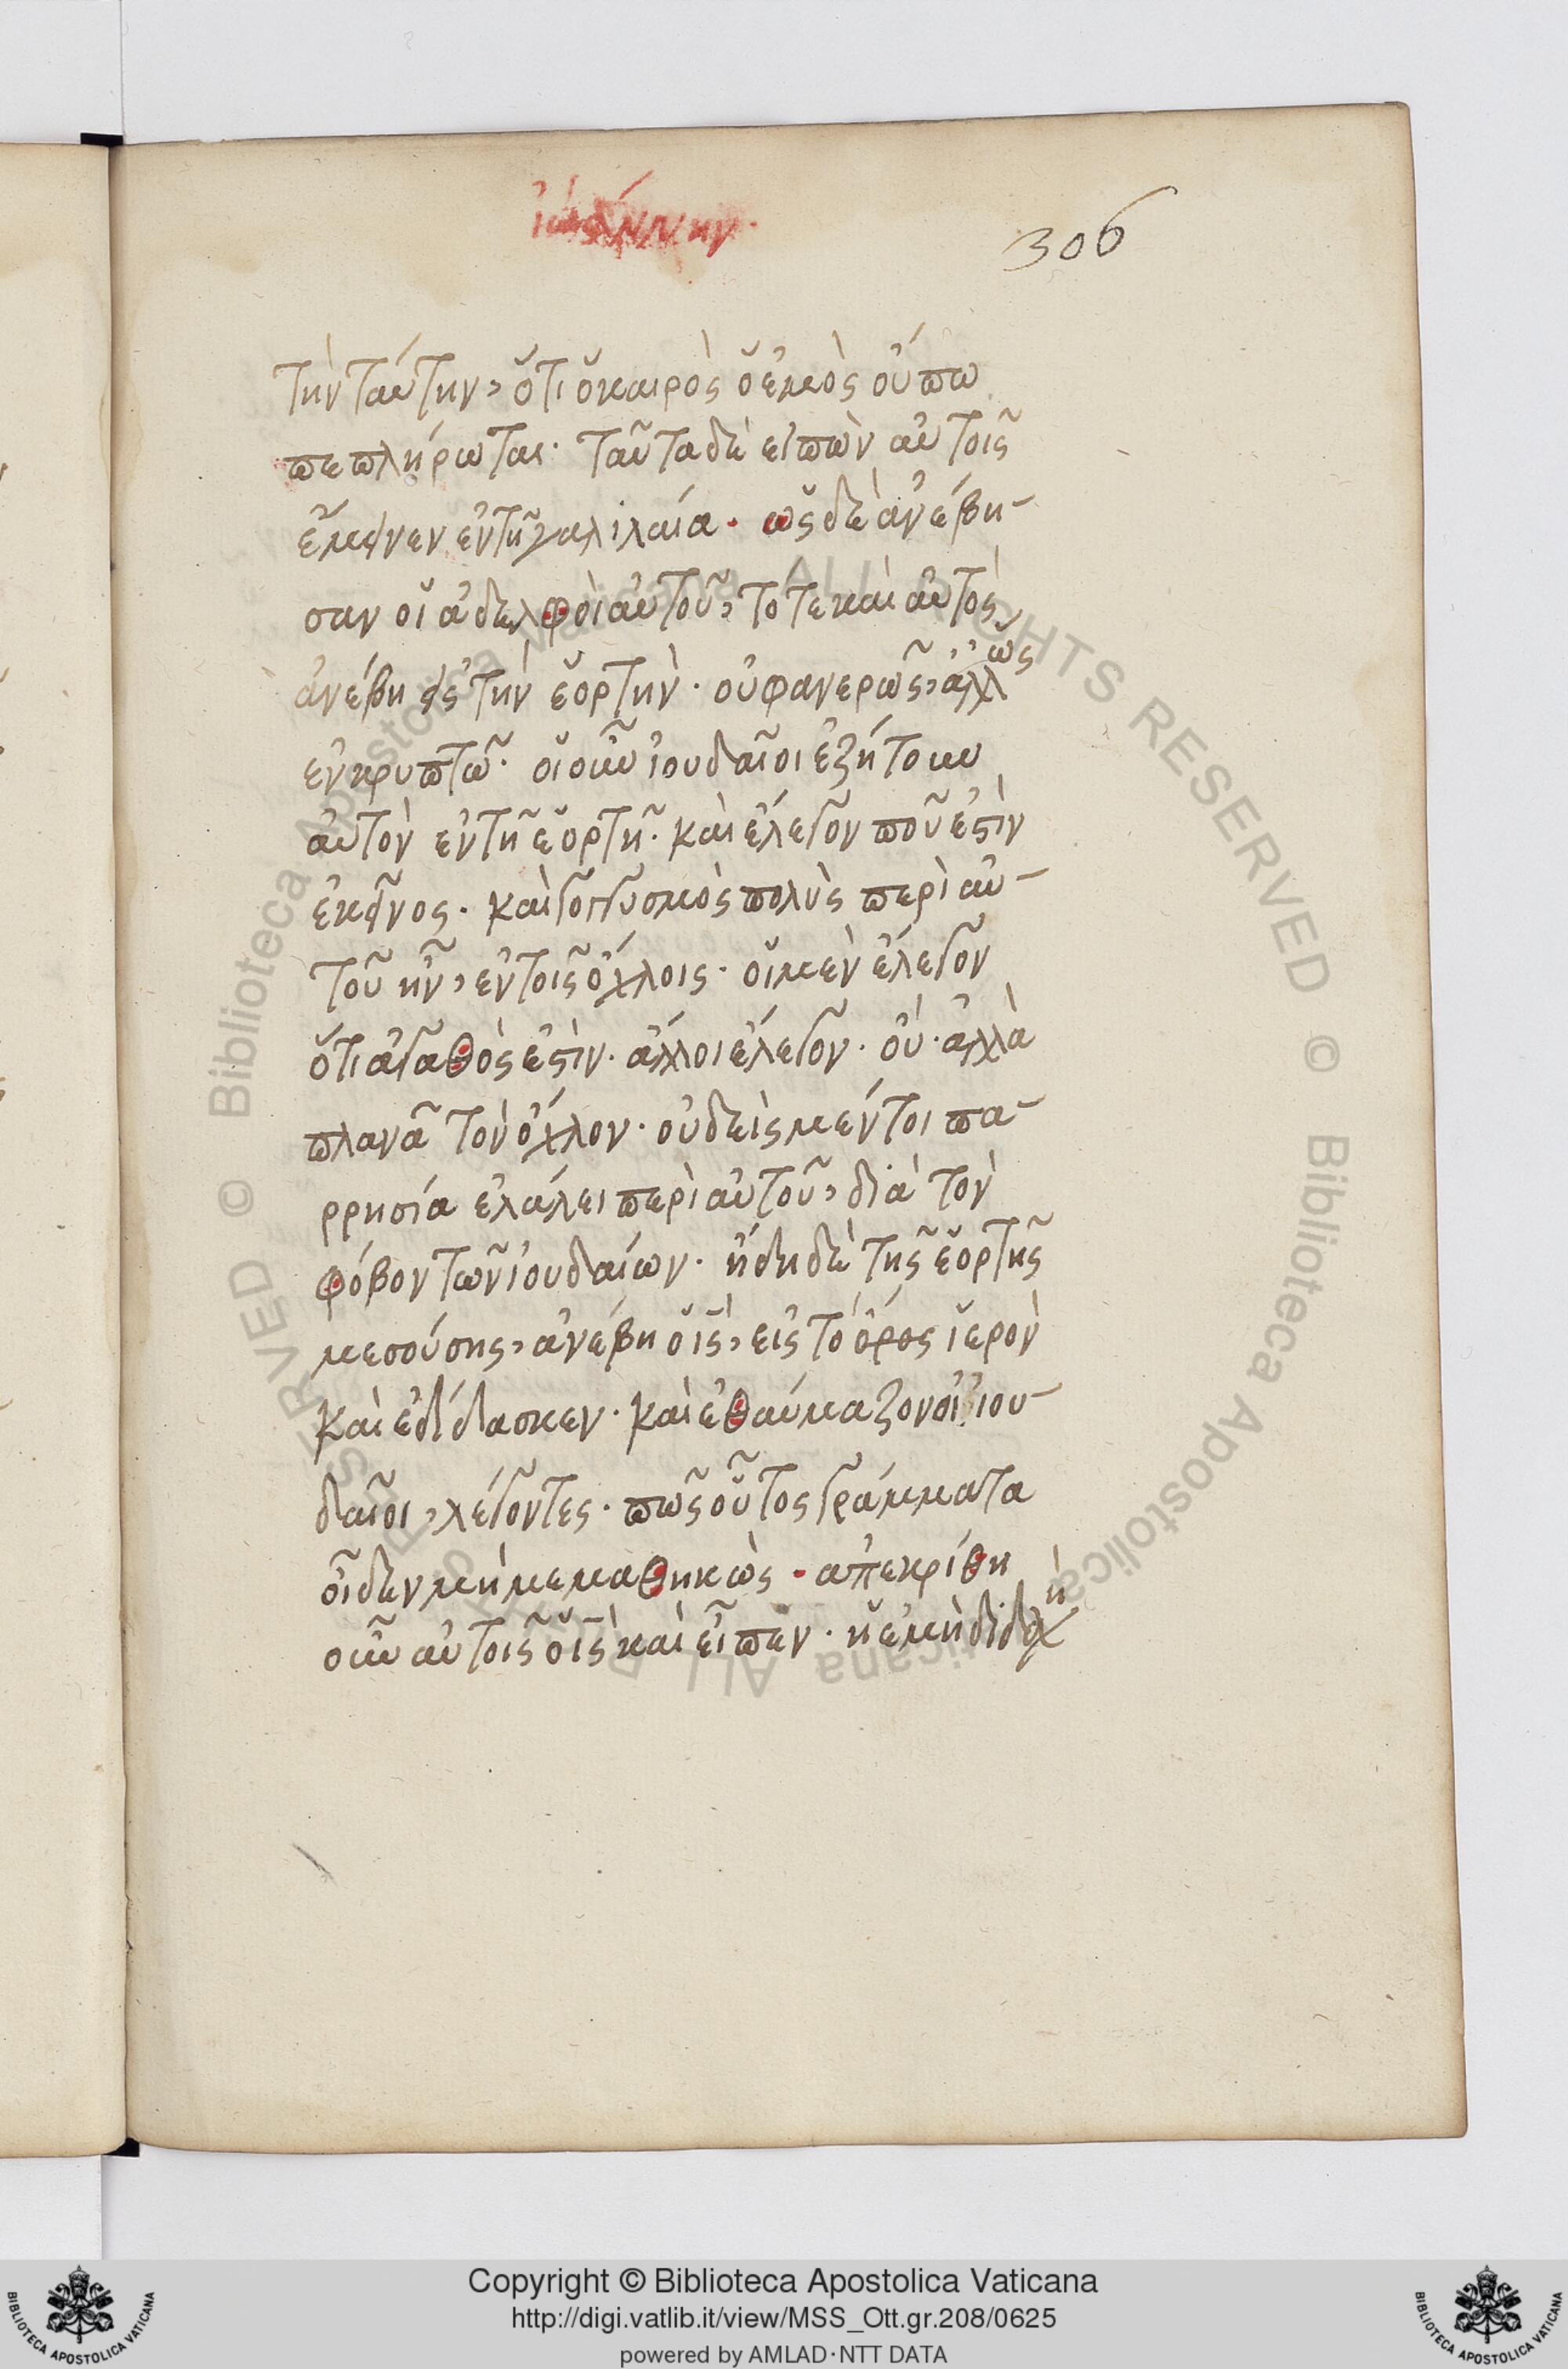 ἰωάννην·
306
τὴν ταύτην, ὅτι ὁ καιρὸς ὁ ἐμὸς οὔπω
πεπλήρωται· ταῦτα δὲ εἰπὼν αὐτοῖς
ἔμεινεν ἐν τῆ γαλιλαία· ὡς δὲ ἀνέβη-
σαν οἱ ἀδελφοὶ αὐτοῦ, τότε καὶ αὐτὸς
ἀνέβη εἰς τὴν ἑορτὴν· οὐ φανερῶς, ἀλλ' ὡς
ἐν κρυπτῶ· οἱ οὖν ἰουδαῖοι ἐζήτουν
αὐτὸν ἐν τῆ ἑορτῆ· καὶ ἔλεγον ποῦ ἐστὶν
ἐκεῖνος· καὶ γογγυσμὸς πολὺς περὶ αὐ-
τοῦ ἦν, ἐν τοῖς ὄχλοις· οἱ μὲν ἔλεγον
ὅτι ἀγαθὸς ἐστὶν· ἄλλοι ἔλεγον· οὐ· ἀλλὰ
πλανᾶ τὸν ὄχλον· οὐδεὶς μέντοι πα-
ρρησία ἐλάλει περὶ αὐτοῦ, διὰ τὸν
φόβον τῶν ἰουδαίων· ἤδη δὲ τῆς ἑορτῆς
μεσούσης, ἀνέβη ὁ ις, εἰς τὸ ὄρος ἱερὸν
καὶ ἐδίδασκεν· καὶ ἐθαύμαζον οἱ ἰου-
δαῖοι, λέγοντες· πῶς οὗτος γράμματα
οἶδεν μὴ μεμαθηκὼς· ἀπεκρίθη
οὖν αὐτοῖς ὁ ις καὶ εἶπεν· ἡ ἐμὴ διδαχὴ
Copyright © Biblioteca Apostolica Vaticana
http://digi.vatlib.it/view/MSS_Ott.gr.208/0625
powered by AMLAD·NTT DATA
BIBLIOTECA APOSTOLICA VATICANA
BIBLIOTECA APOSTOLICA VATICANA
© Biblioteca Apostolica Vaticana ALL RIGHTS RESERVED © Biblioteca Apostolica Vaticana ALL RIGHTS RESERVED